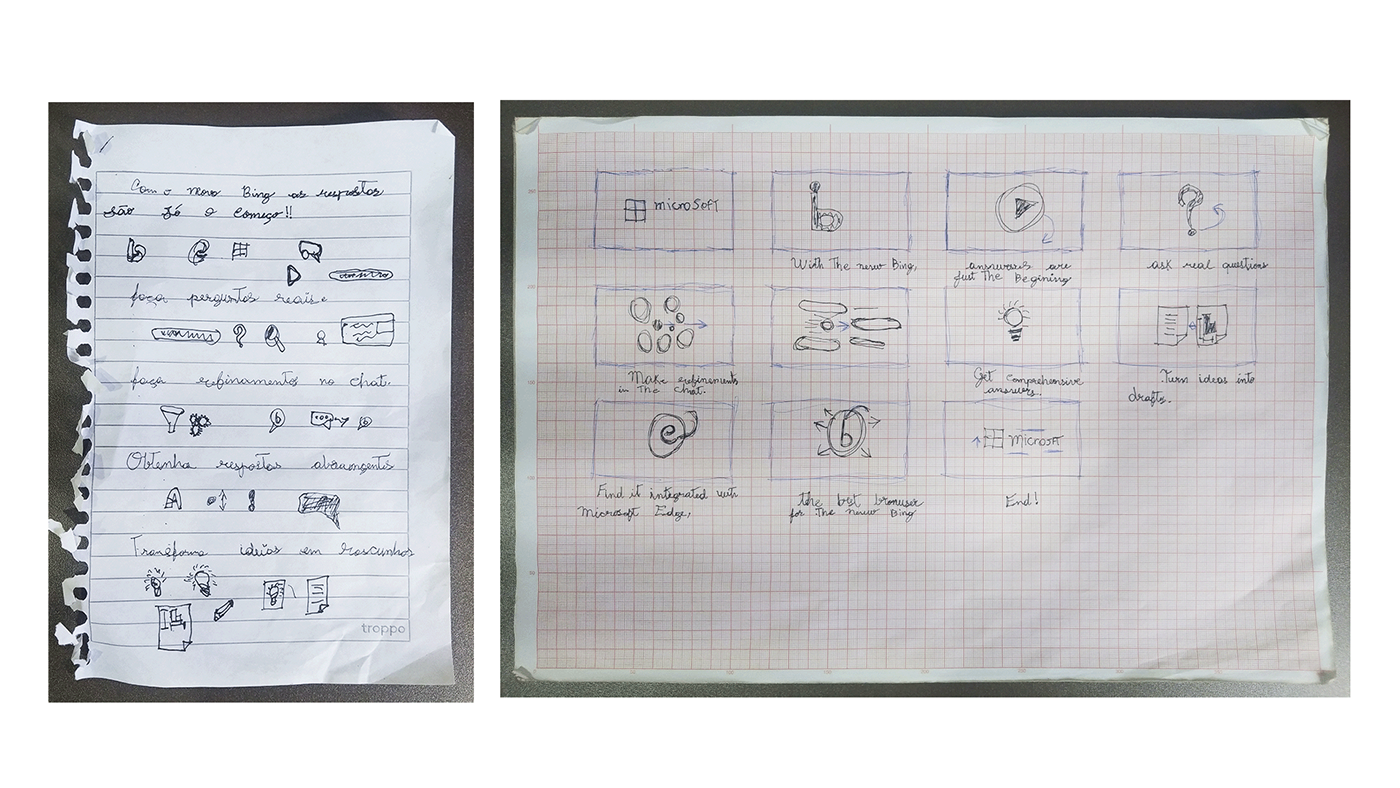 Com o novo Bing as respostas
são só o começo!!
faça perguntas reais.
faça refinamentos no chat.
Obtenha respostas abrangentes
Transforma ideias em rascunhos
troppo
microsoft
With The new Bing,
answears are
just The Begining
ask real questions
Make refinements
in The chat.
Get comprehensive
answears.
Turn ideas into
drafts.
Find it integrated with
Microsoft Edge,
the best browser
for The neww Bing
Microsoft
End!